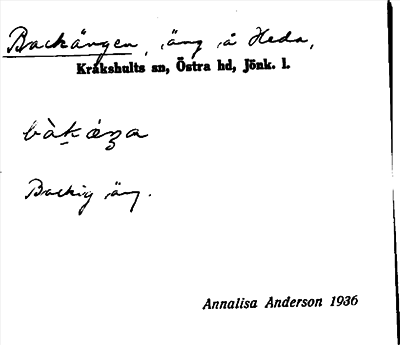 Backängen, äng å Heda,
Kråkshults sn, Östra hd, Jönk. l.
Backig äng.
Annalisa Anderson 1936